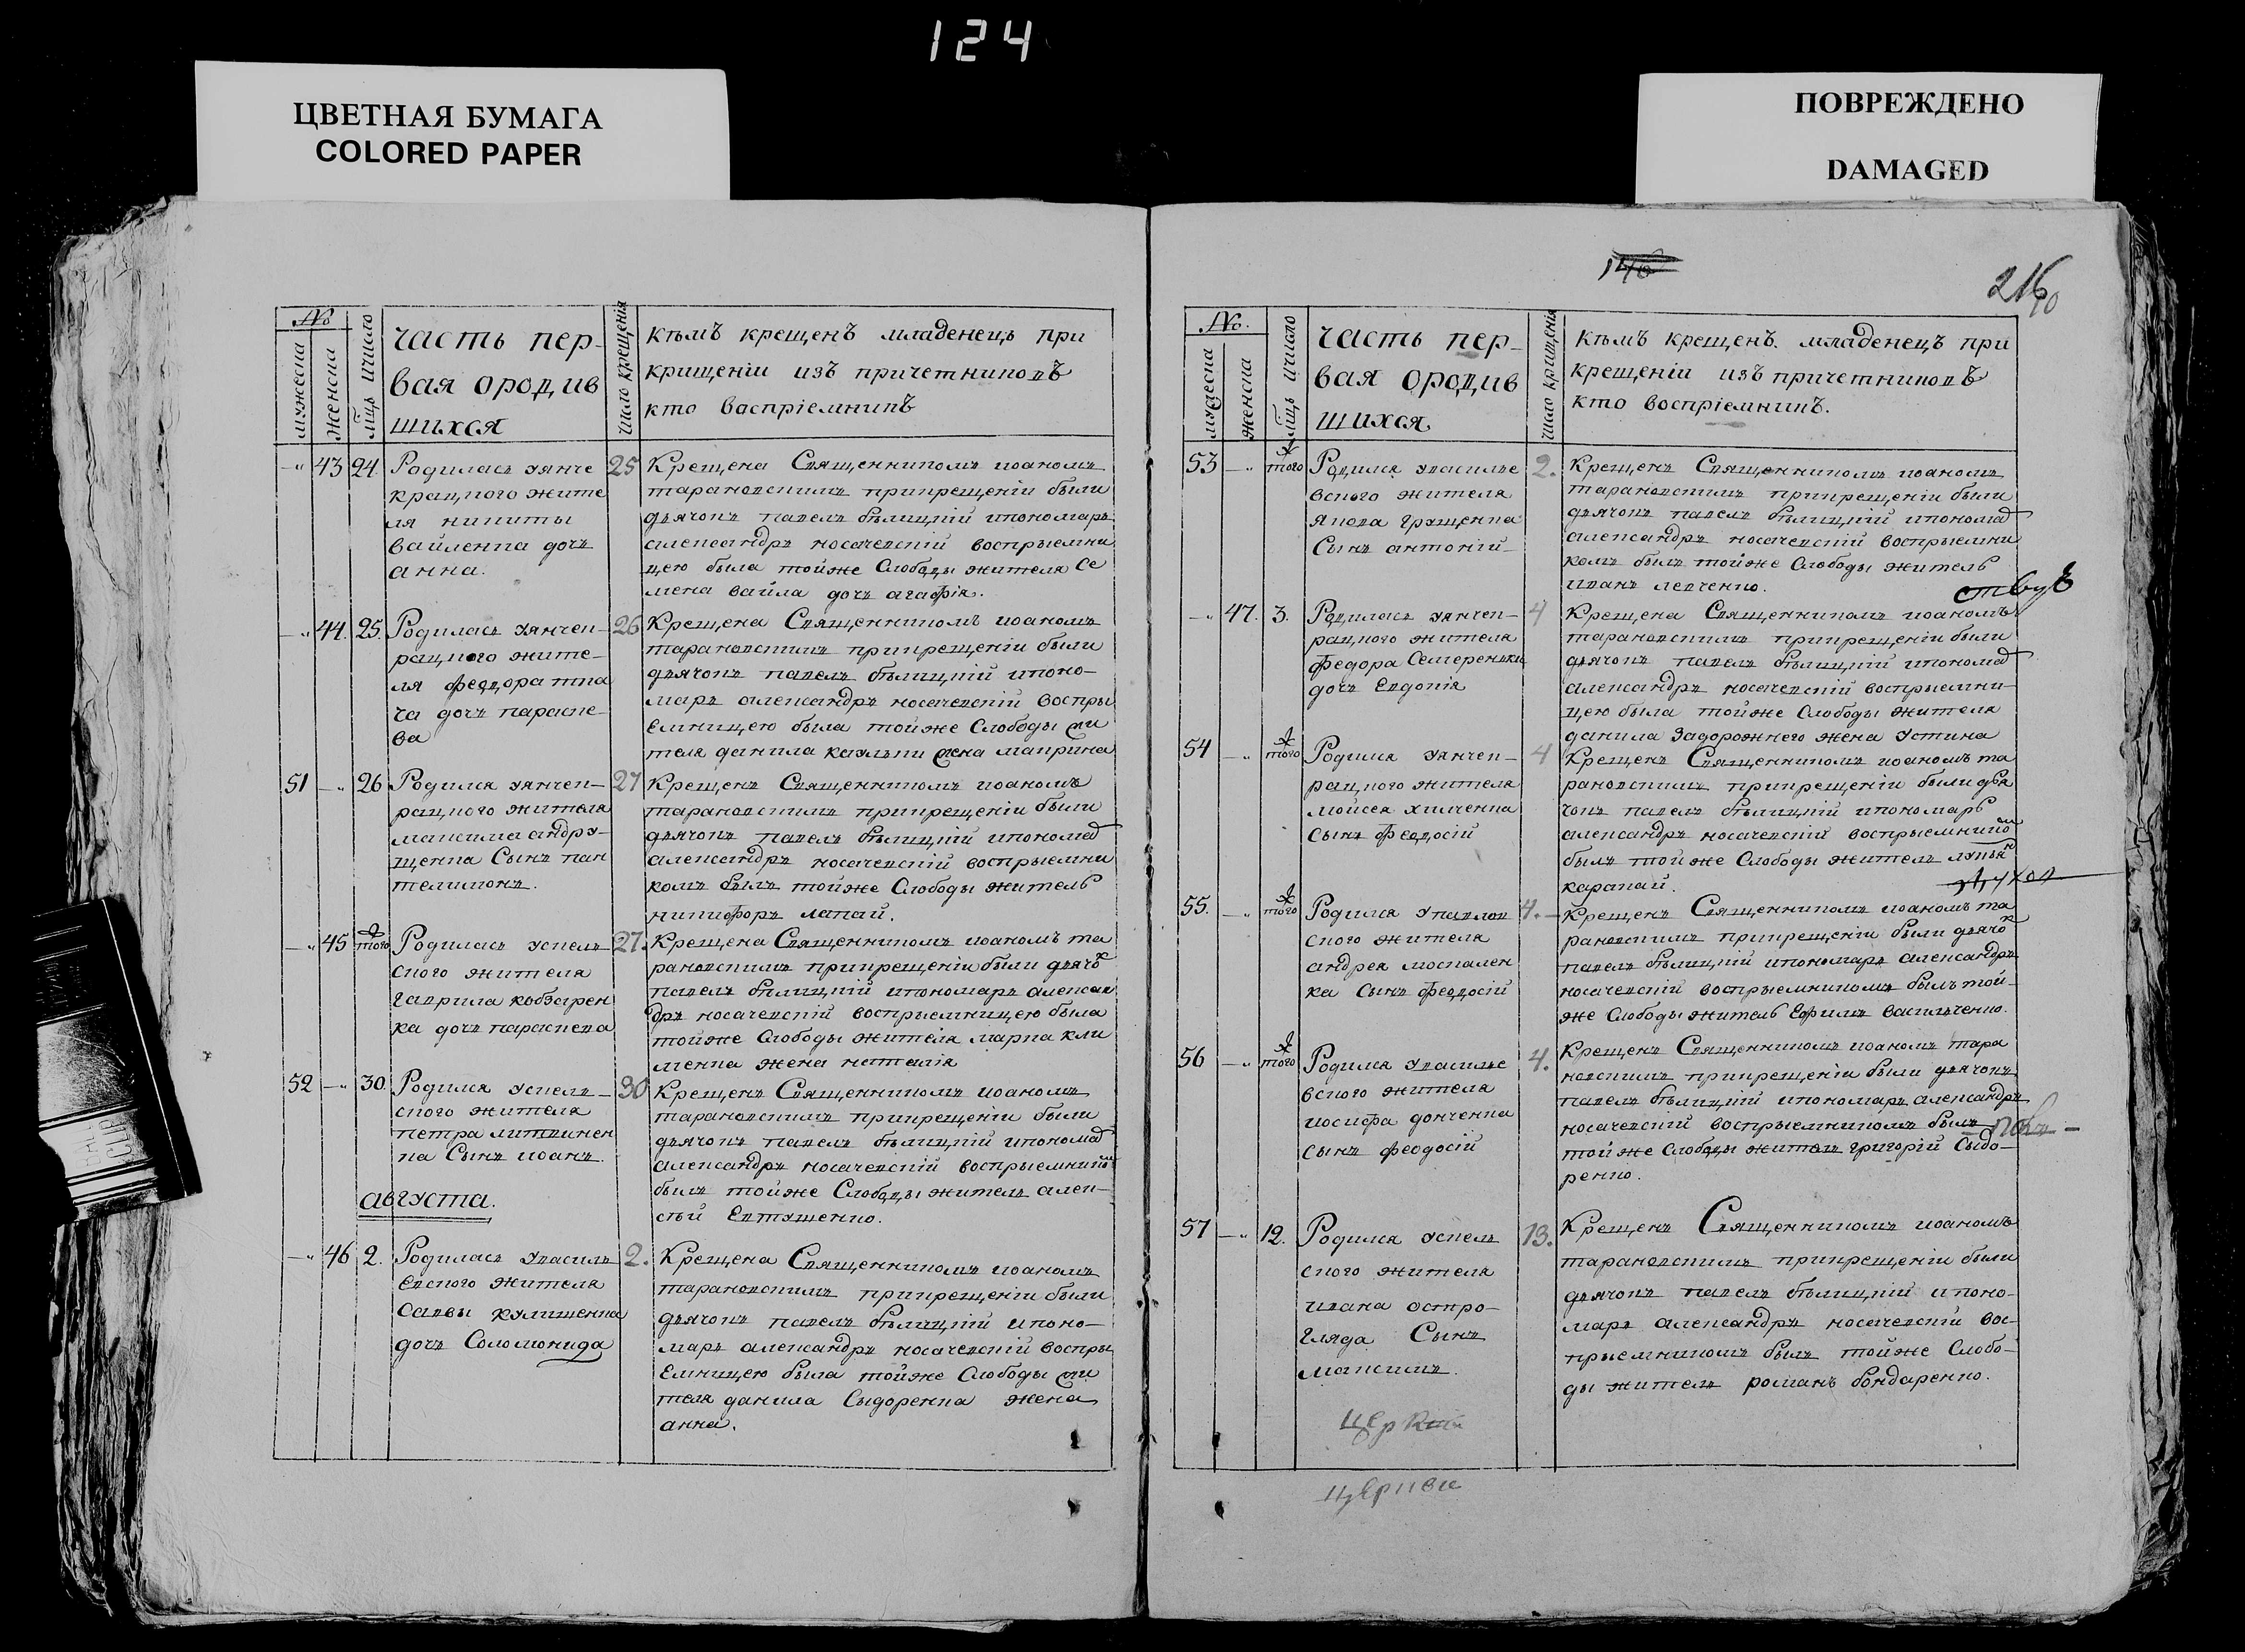 124
ЦВЕТНАЯ БУМАГА
COLORED PAPER
ПОВРЕЖДЕНО
DAMAGED
№
мужеска
женска
мць ичисло
часть пер-
вая ородив
шихся
число крещенія
кѣмъ крещенъ младенецъ при
крищеніи изъ причетниковъ
кто васпріемникъ
-" 43 24. Родилась уянче 25
крацкого жите
ля никиты
вайленка дочь
анна.
Крещена Священникомъ иоаномъ
тарановскимъ прикрещеніи были
дьячокъ павелъ бѣлицкій ипономарь
александръ носачевскій воспрыемни
цею была тойже Слободы жителя Се
мена вайла дочь агафія.
-" 44. 25. Родилась уянчек- 26
рацкого жите-
ля феодора тка
ча дочь параске-
ва
Крещена Священникомъ иоаномъ
тарановскимъ прикрещеніи были
дьячокъ павелъ бѣлицкій ипоно-
марь александръ носачевскій воспры
емницею была тойже Слободы жи
теля данила каульки жена макрина
51 -" 26 Родился уянчек- 27
рацкого жителя
максима андру-
щенка Сынъ пан
телимонъ.
Крещенъ Священникомъ иоаномъ
тарановскимъ прикрещеніи были
дьячокъ павелъ бѣлицкій ипономар
александръ носачевскій воспрыемни
комъ былъ тойже Слободы житель
никифоръ лапай.
-" 45 того Родилась успель- 27.
ского жителя
гаврила кобзарен
ка дочь параскева
Крещена Священникомъ иоаномъ та
рановскимъ прикрещеніи были дьячок
павелъ бѣлицкій ипономарь алексан
дръ носачевскій воспрыемницею была
тойже Слободы жителя марка кли
менка жена наталія
52 -" 30. Родился успель- 30
ского жителя
петра литвинен
ка Сынъ иоанъ.
Крещенъ Священникомъ иоаномъ
тарановскимъ прикрещеніи были
дьячокъ павелъ бѣлицкій ипономар
александръ носачевскій воспрыемником
былъ тойже Слободы житель алек-
сѣй Евтушенко.
августа.
-" 46 2. Родилась увасиль 2.
евского жителя
Саввы кулишенка
дочь Соломонида
Крещена Священникомъ иоаномъ
тарановскимъ прикрещеніи были
дьячокъ павелъ бѣлицкій ипоно-
марь александръ носачевскій воспры
емницею была тойже Слободы жи
теля данила Сыдоренка жена
анна.
216
№.
мужеска
женска
мць ичисло
часть пер-
вая ородив
шихся
число крищенія
кѣмъ крещенъ. младенецъ при
крещеніи изъ причетниковъ
кто воспріемникъ.
53 -" того Родился увасилье 2.
вского жителя
якова грущенка
Сынъ антоній-
Крещенъ Священникомъ иоаномъ
тарановскимъ прикрещеніи были
дьячокъ павелъ бѣлицкій ипономар
александръ носачевскій воспрыемни
комъ былъ тойже Слободы житель
иванъ левченко.
-" 47. 3. Родилась уянчек- 4
рацкого жителя
федора Семереньки
дочь Евдокія
Крещена Священникомъ иоаномъ
тарановскимъ прикрещеніи были
дьячокъ павелъ бѣлицкій ипономар
александръ носачевскій воспрыемни-
цею была тойже Слободы жителя
данила Задорожнего жена Устина
54 -" того Родился уянчек- 4
рацкого жителя
мойсея химченка
Сынъ феодосій
Крещенъ Священникомъ иоаномъ та
рановскимъ прикрещеніи были дья
чокъ павелъ бѣлицкій ипономарь
александръ носачевскій воспрыемником
былъ тойже Слободы житель лукьян
карапай.
55. -" того Родился упавлов 4.-
ского жителя
андрея москален
ка Сынъ феодосій
Крещенъ Священникомъ иоаномъ та
рановскимъ прикрещеніи были дьячок
павелъ бѣлицкій ипономарь александръ
носачевскій воспрыемникомъ былъ той-
же Слободы житель Ефимъ васильченко.
56 -" того Родился увасилье 4.
вского жителя
иосифа донченка
Сынъ феодосій
Крещенъ Священникомъ иоаномъ тара
новскимъ прикрещеніи были дьячокъ
павелъ бѣлицкій ипономарь александръ
носачевскій воспрыемникомъ былъ
тойже Слободы житель григорій Сыдо-
ренко.
57 -" 12. Родился успель 13.
ского жителя
ивана остро-
гляда Сынъ
максимъ.
Крещенъ Священникомъ иоаномъ
тарановскимъ прикрещеніи были
дьячокъ павелъ бѣлицкій ипоно-
марь александръ носачевскій вос-
прыемникомъ былъ тойже Слобо-
ды житель романъ бондаренко.